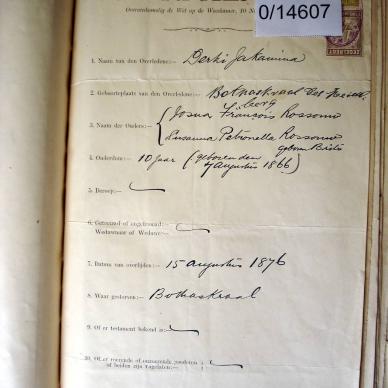 0/14607
Overeenkomstig de Wet op de Weeskamer, 10 No
1. Naam van den Overledene:— Derki Jakamina
2. Geboorteplaats van den Overledene:— Bothaskraal Dist
burg
3. Naam der Ouders:— Josua François Rossouw
Susanna Petronella Rossouw
geboren
4. Ouderdom:— 10 jaar (geboren den
7 Augustus 1866)
5. Beroep:—
6. Getrouwd of ongetrouwd:
Weduwnaar of Weduwe:
7. Datum van overlijden:— 15 augustus 1876
8. Waar gestorven:— Bothaskraal
9. Of er testament bekend is:—
10. Of er roerende of onroerende goederen
of beiden zijn nagelaten:—